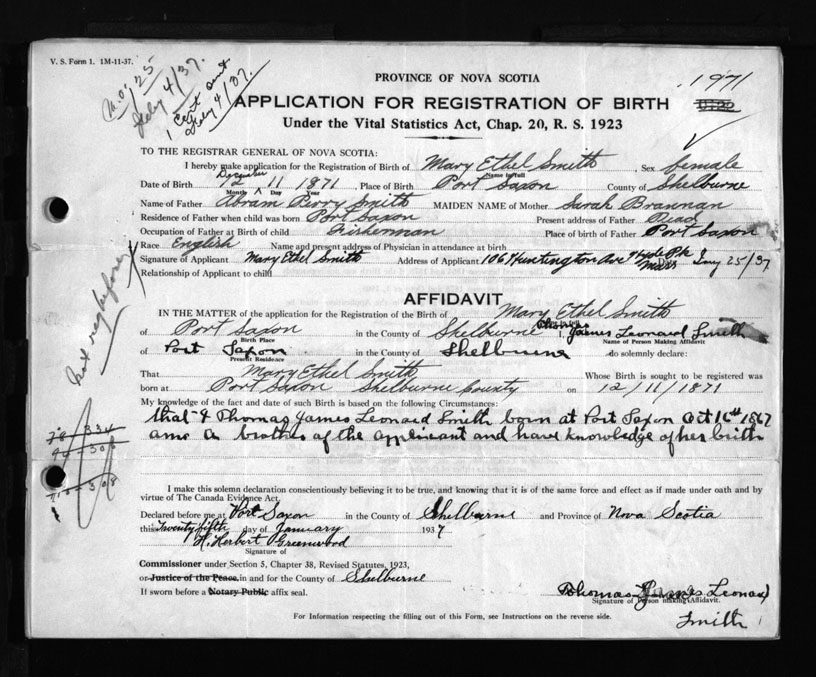 V. S. Form 1. 1M-11-37.
Feby 4/37.
1 Cert sent
Feby 4/37.
PROVINCE OF NOVA SCOTIA
1971
APPLICATION FOR REGISTRATION OF BIRTH
Under the Vital Statistics Act, Chap. 20, R. S. 1923
TO THE REGISTRAR GENERAL OF NOVA SCOTIA:
I hereby make application for the Registration of Birth of Mary Ethel Smith Sex female
Name in full
December
Date of Birth 12 11 1871 Place of Birth Port Saxon County of Shelburne
Month Day Year
Name of Father Abram Perry Smith MAIDEN NAME of Mother Sarah Brannan
Residence of Father when child was born Port Saxon Present address of Father Dead
Occupation of Father at Birth of child Fisherman Place of birth of Father Port Saxon
Race English Name and present address of Physician in attendance at birth
Signature of Applicant Mary Ethel Smith Address of Applicant 106 Huntington Ave Hyde Pk Mass Jany 25/37
Relationship of Applicant to child
Not reg before
AFFIDAVIT
IN THE MATTER of the application for the Registration of the Birth of Mary Ethel Smith
of Port Saxon in the County of Shelburne I, Thomas James Leonard Smith
Birth Place Name of Person Making Affidavit
of Port Saxon in the County of Shelburne do solemnly declare:
Present Residence
That Mary Ethel Smith Whose Birth is sought to be registered was
born at Port Saxon Shelburne County on 12/11/1871
My knowledge of the fact and date of such Birth is based on the following Circumstances:
that I Thomas James Leonard Smith born at Port Saxon Oct 16th 1867
ame a brother of the applicant and have knowledge of her birth
I make this solemn declaration conscientiously believing it to be true, and knowing that it is of the same force and effect as if made under oath and by
virtue of The Canada Evidence Act.
Declared before me at Port Saxon in the County of Shelburne and Province of Nova Scotia
this Twenty fifth day of January 1937
H. Herbert Greenwood
Signature of
Commissioner under Section 5, Chapter 38, Revised Statutes, 1923,
or Justice of the Peace in and for the County of Shelburne
If sworn before a Notary Public affix seal.
Thomas James Leonard
Signature of Person making Affidavit.
Smith
For Information respecting the filling out of this Form, see Instructions on the reverse side.